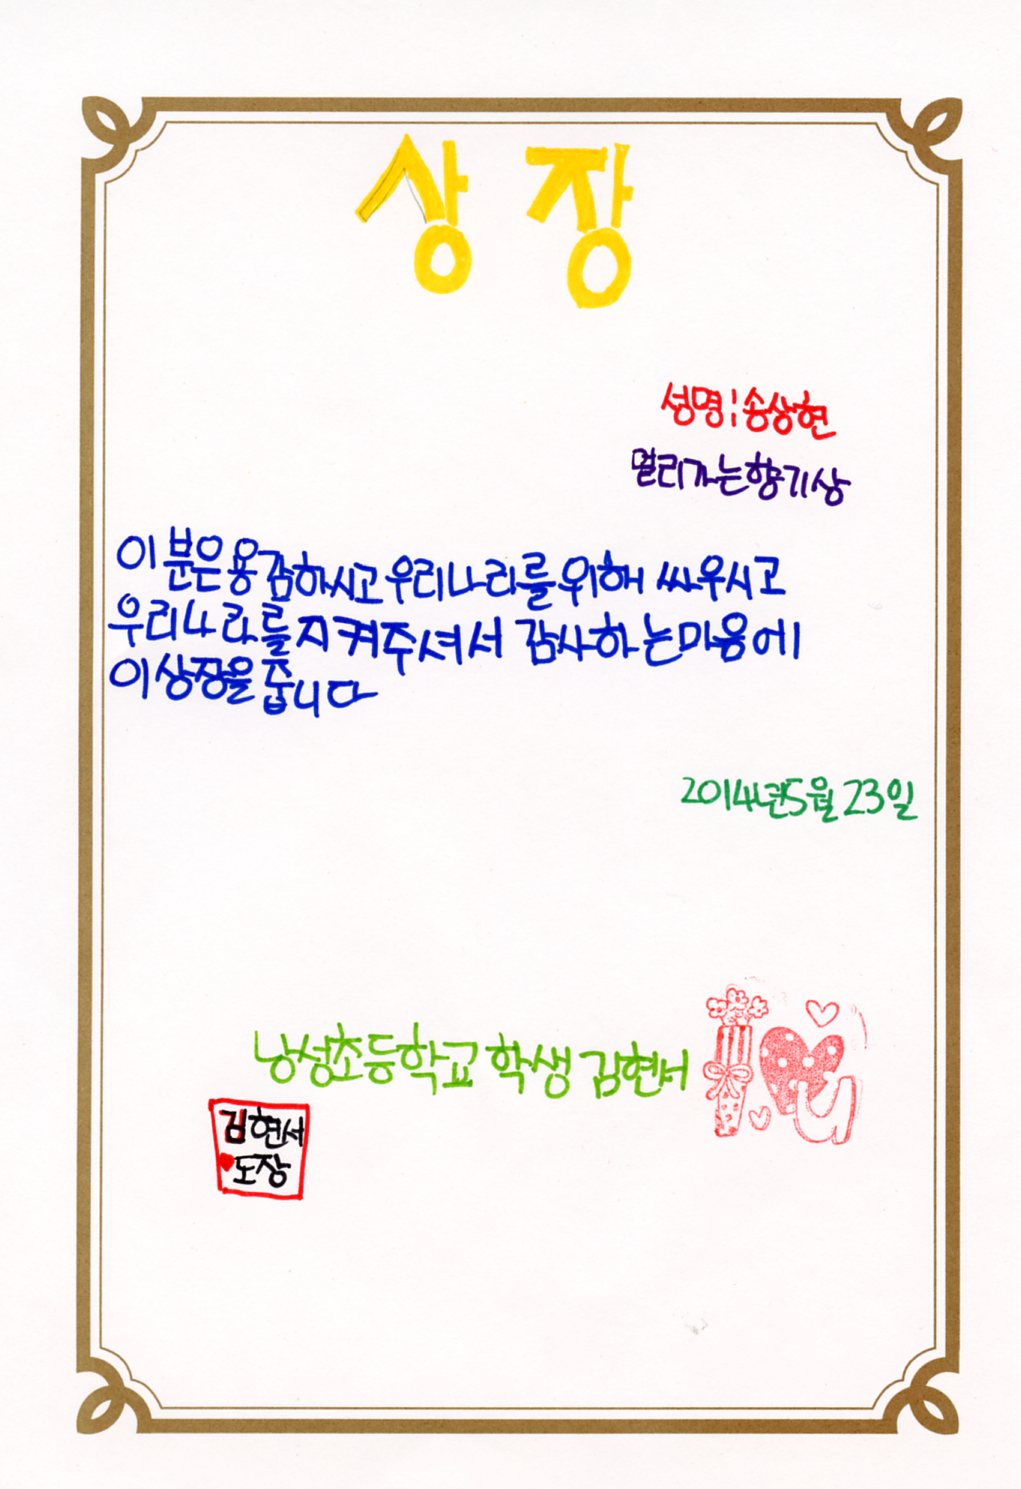 상장
성명:송상현
멀리가는향기상
이분은용감하시고우리나라를위해 싸우시고
우리나라를지켜주셔서 감사하는마음에
이상장을줍니다
2014년5월23일
낭성초등학교 학생 김현서
김현서
도장